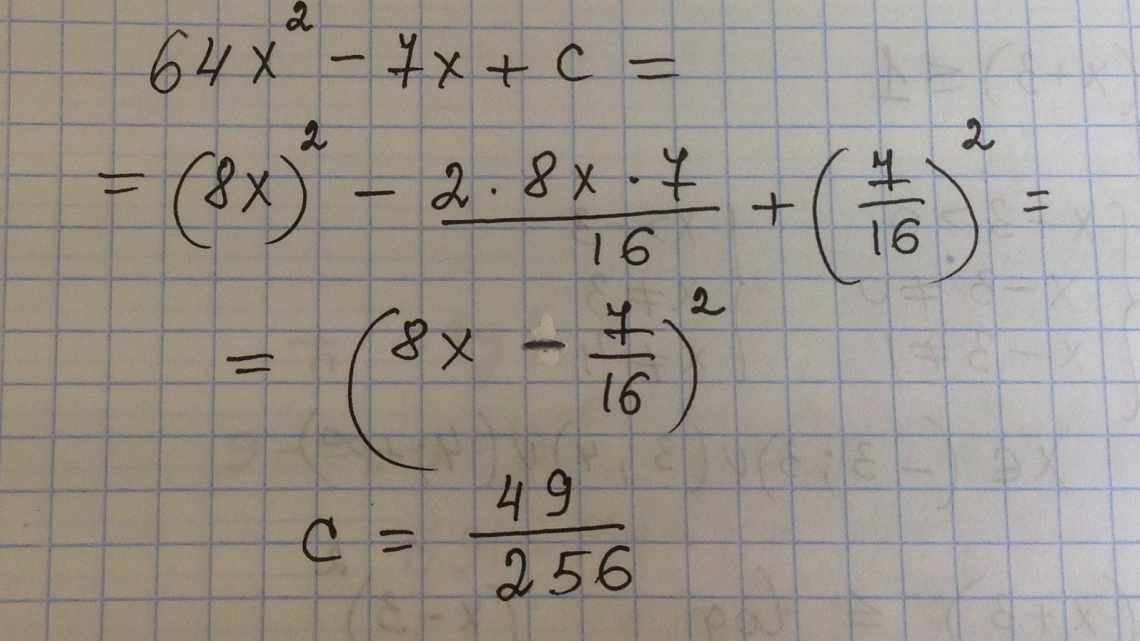 64x² - 7x + c =
= (8x)² - (2 · 8x · 7)/16 + (7/16)² =
= (8x - 7/16)²
c = 49/256